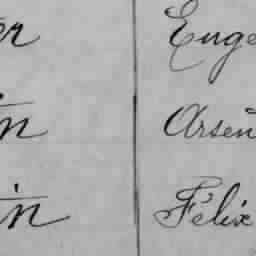 er Euge
in Arsèn
in Félix